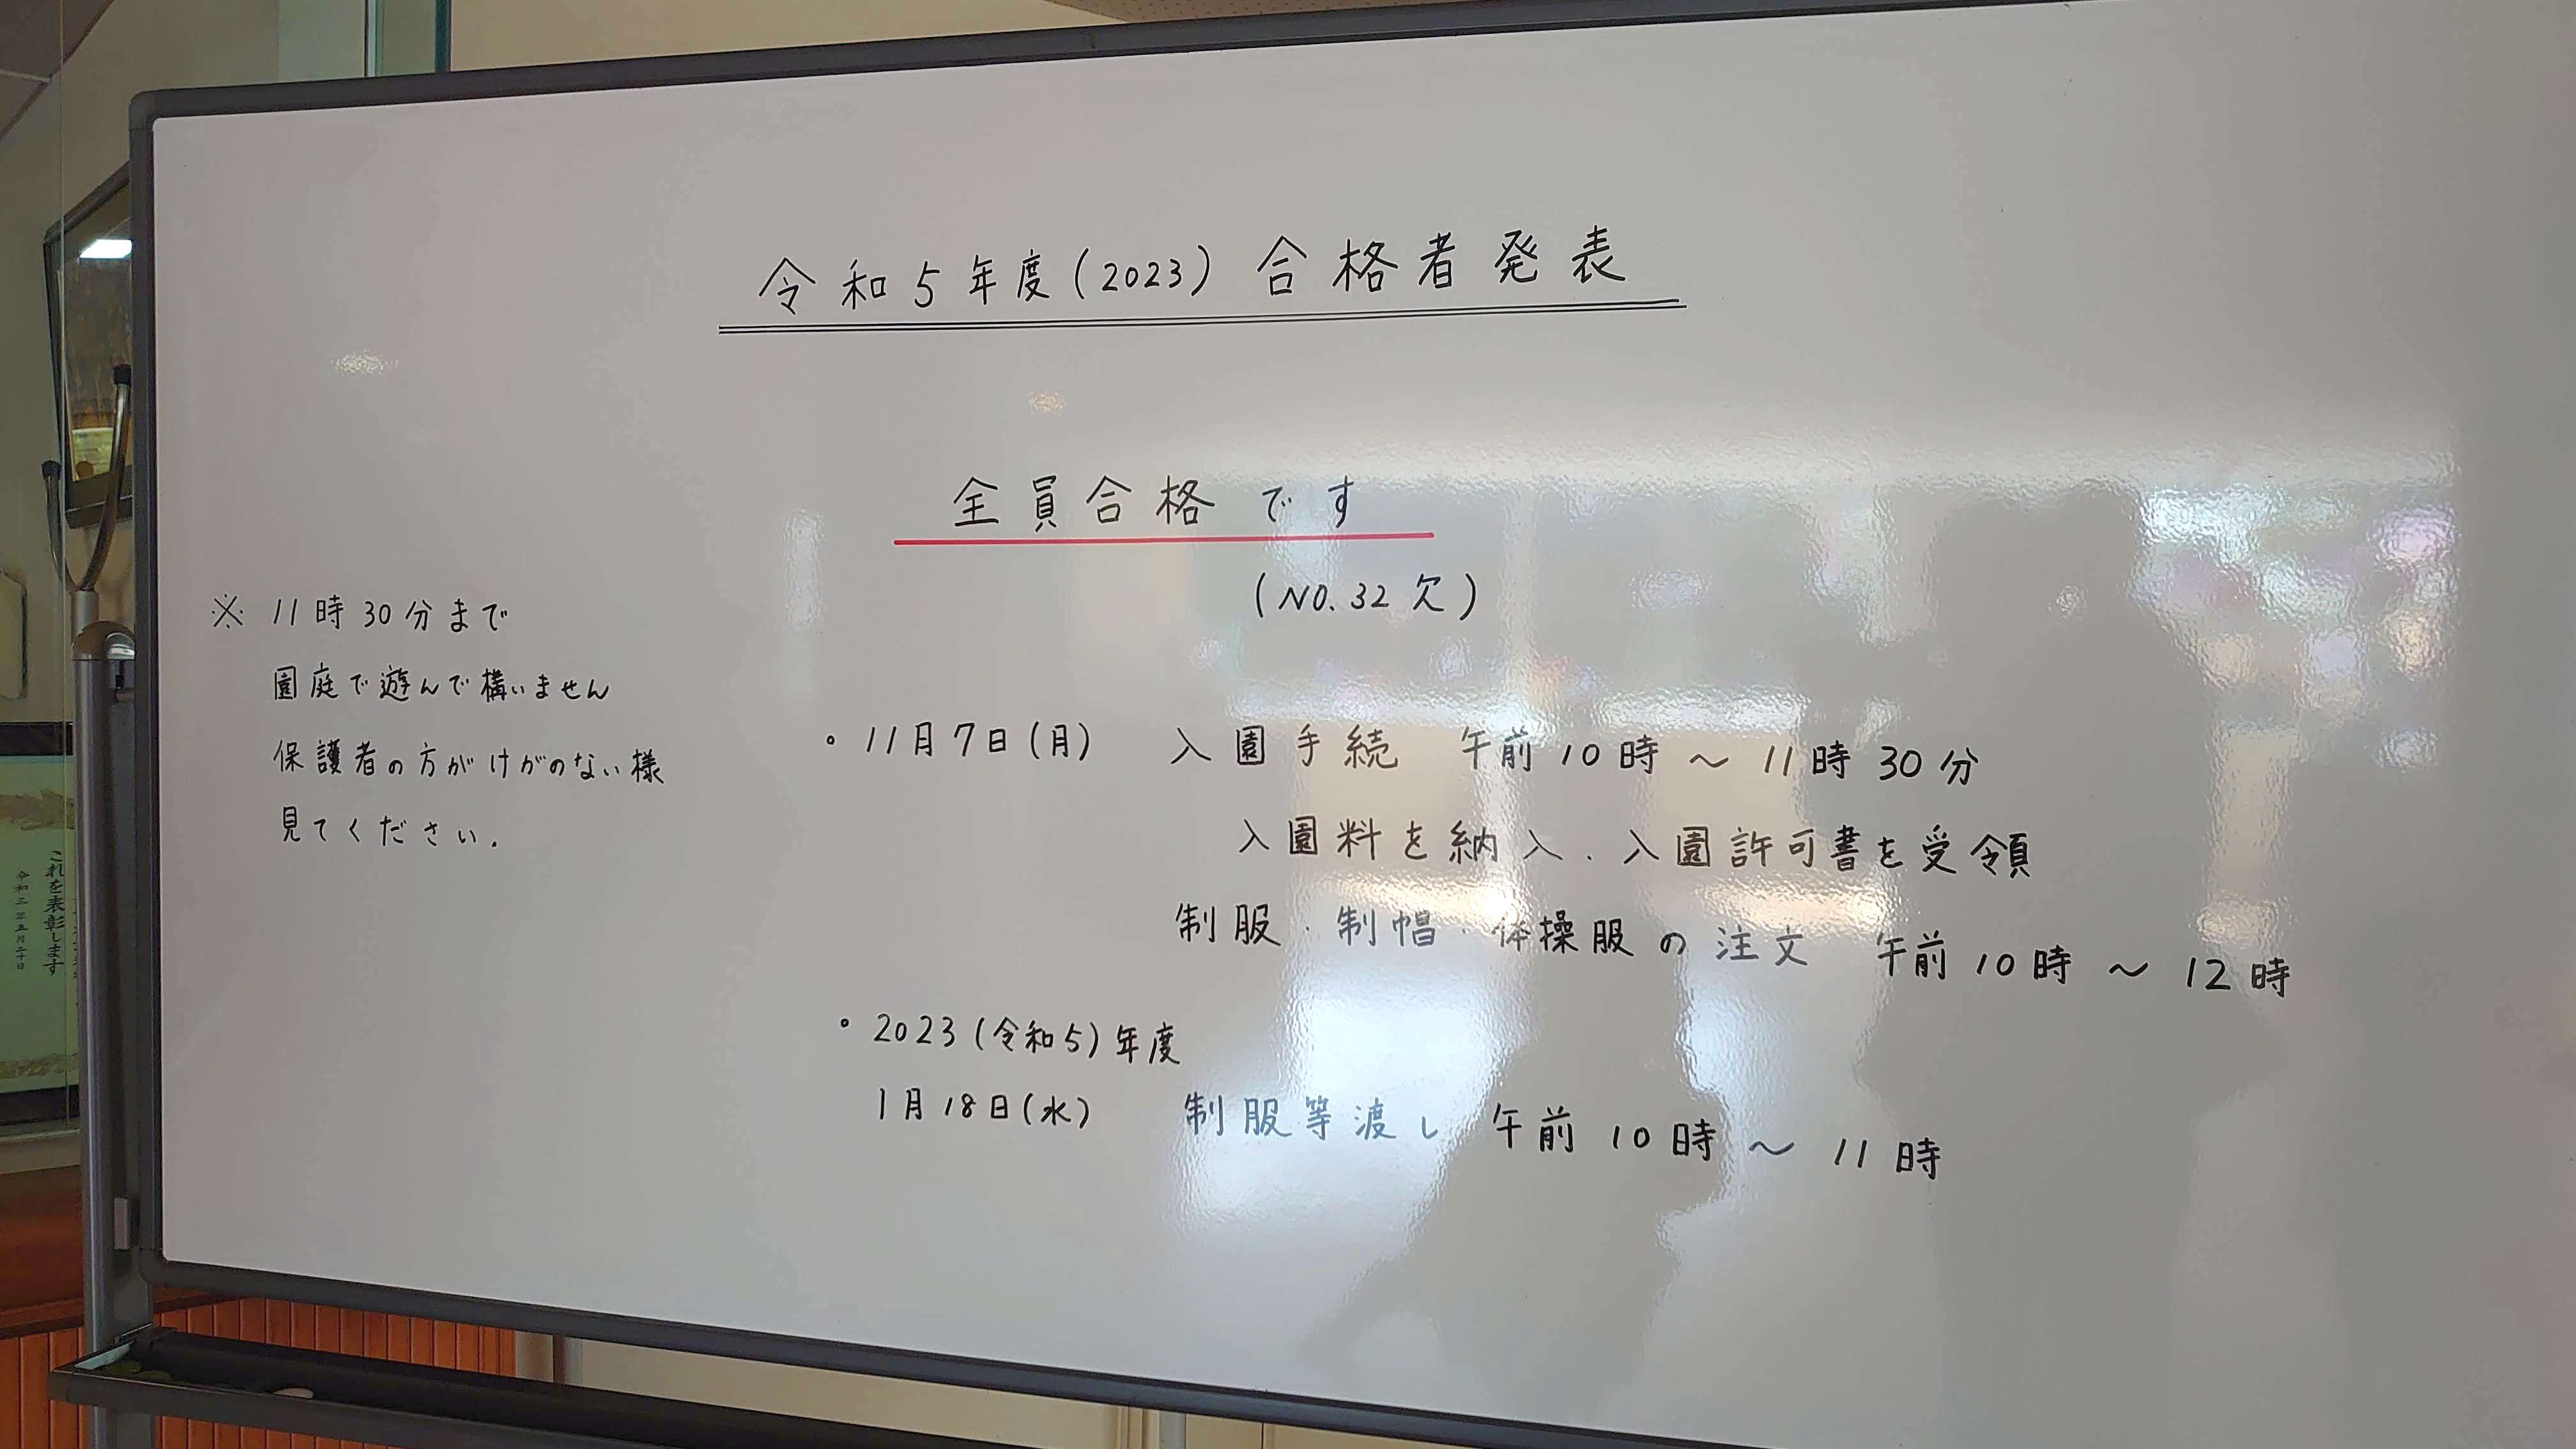 令和5年度(2023) 合格者発表
全員合格です
(NO.32欠)
※ 11時30分まで
園庭で遊んで構いません
保護者の方がけがのない様
見てください.
• 11月7日(月) 入園手続 午前10時〜11時30分
入園料を納入、入園許可書を受領
制服・制帽・体操服の注文 午前10時〜12時
• 2023(令和5)年度
1月18日(水) 制服等渡し 午前10時〜11時
これを表彰します
令和三年五月二十日